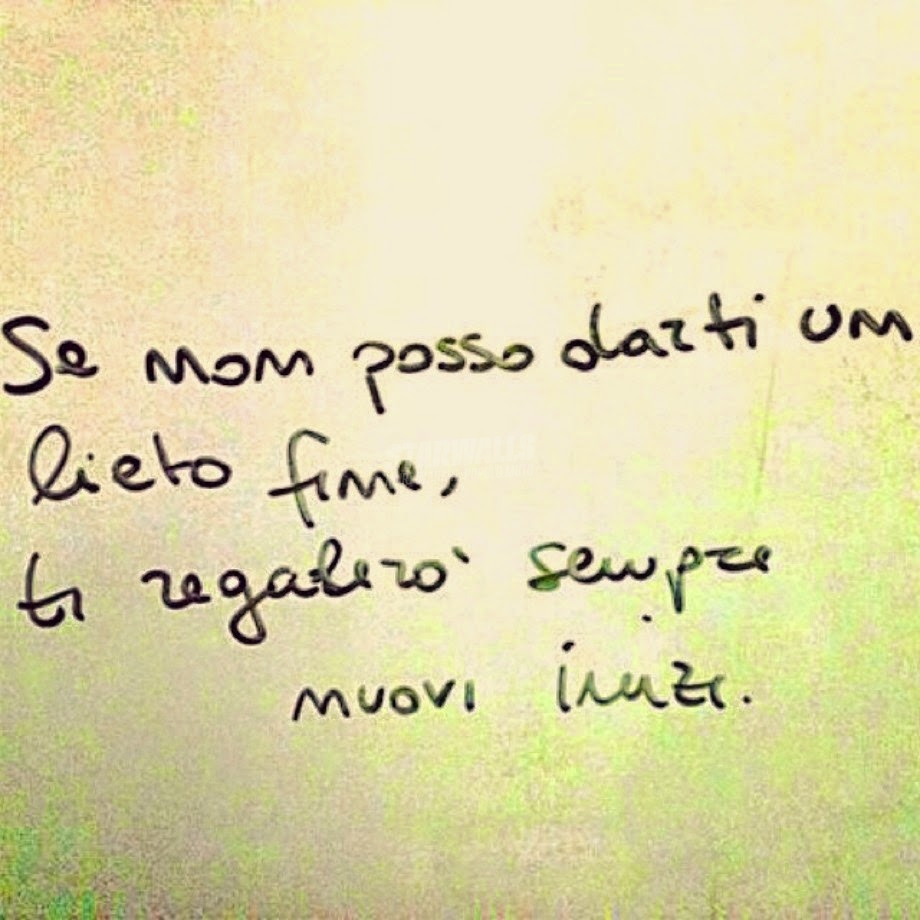 Se non posso darti un
lieto fine,
ti regalerò sempre
nuovi inizi.